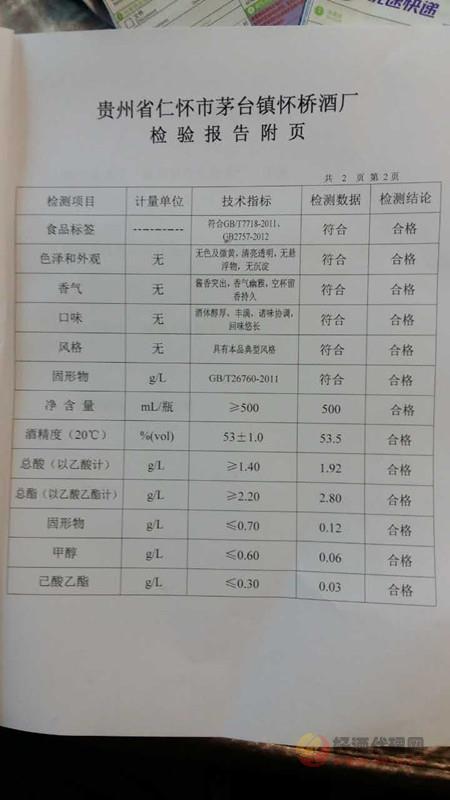 快递
贵州省仁怀市茅台镇怀桥酒厂
检验报告附页
共 2 页 第 2页
检测项目 计量单位 技术指标 检测数据 检测结论
食品标签 ----------- 符合GB/T7718-2011、 符合 合格
GB2757-2012
色泽和外观 无 无色及微黄，清亮透明，无悬 符合 合格
浮物，无沉淀
香气 无 酱香突出，香气幽雅，空杯留 符合 合格
香持久
口味 无 酒体醇厚、丰满、诸味协调， 符合 合格
回味悠长
风格 无 具有本品典型风格 符合 合格
固形物 g/L GB/T26760-2011 符合 合格
净 含 量 mL/瓶 ≥500 500 合格
酒精度（20℃） %(vol) 53±1.0 53.5 合格
总酸（以乙酸计） g/L ≥1.40 1.92 合格
总酯（以乙酸乙酯计） g/L ≥2.20 2.80 合格
固形物 g/L ≤0.70 0.12 合格
甲醇 g/L ≤0.60 0.06 合格
己酸乙酯 g/L ≤0.30 0.03 合格
好酒代理网